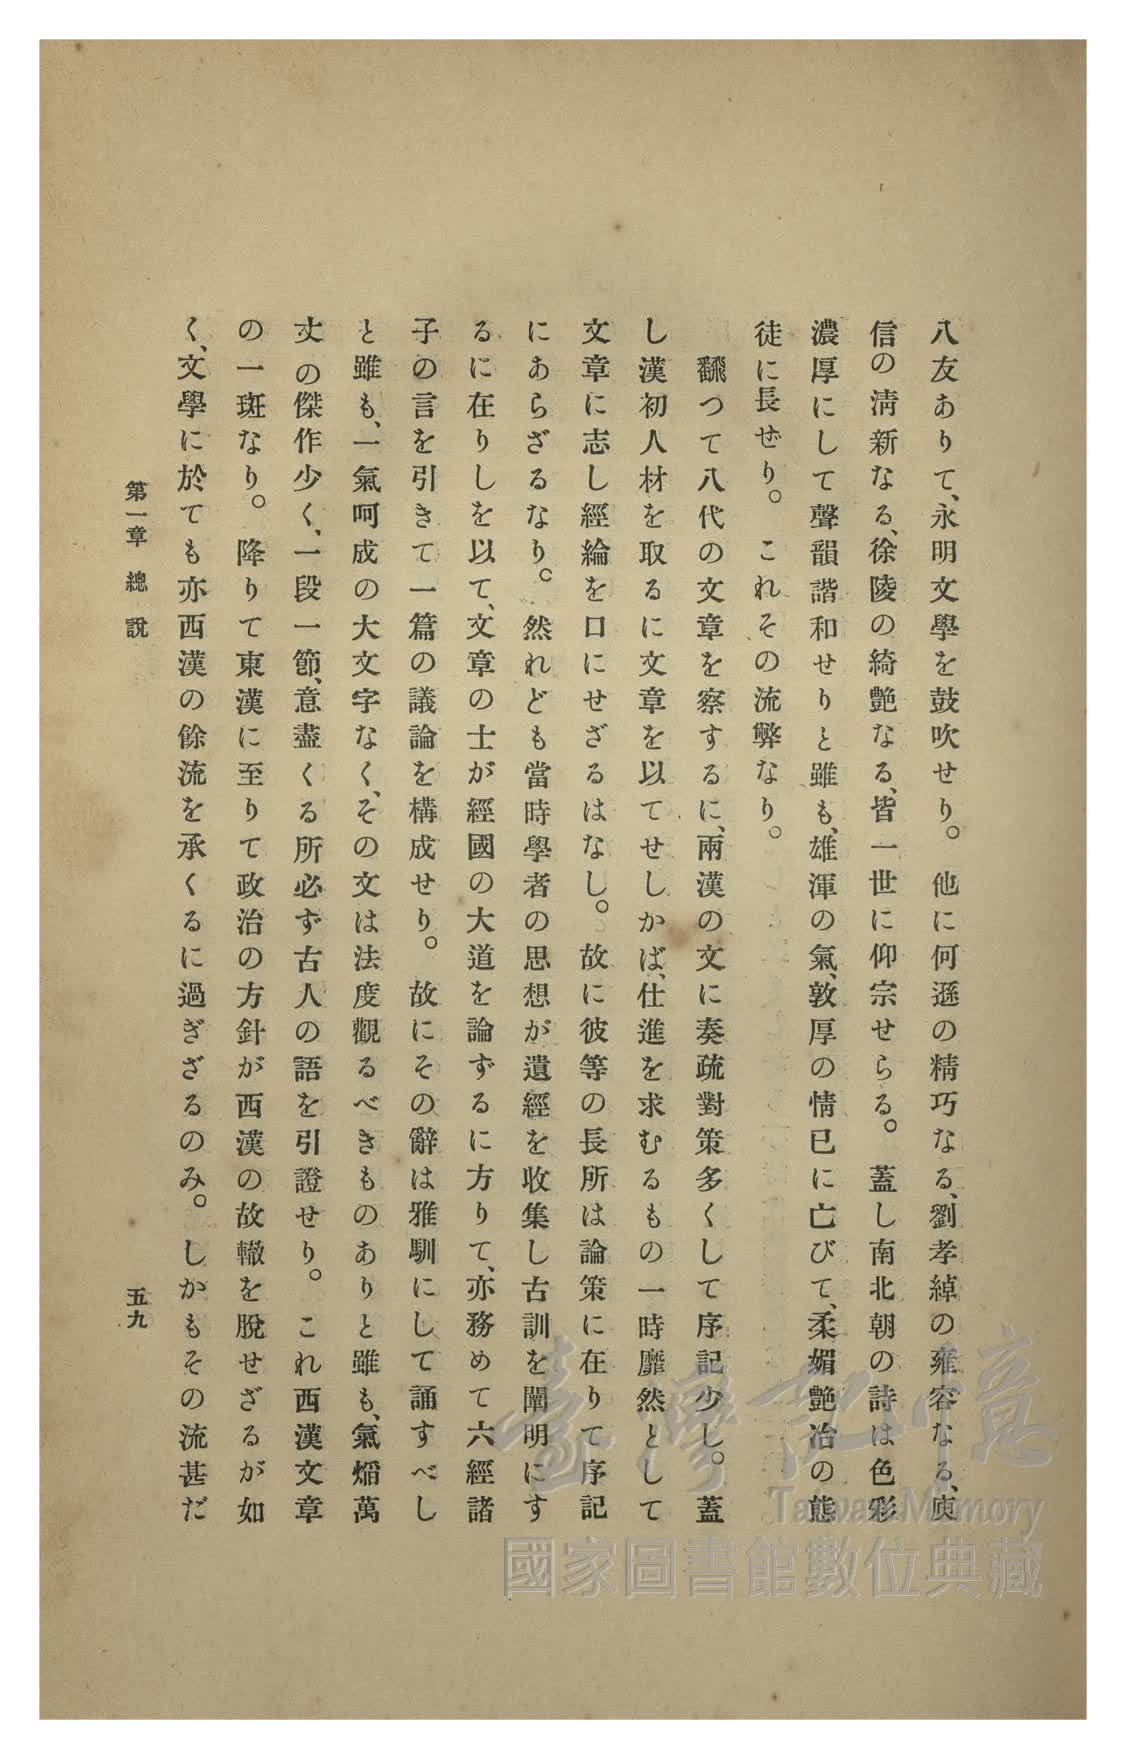 八友ありて、永明文學を鼓吹せり。他に何遜の精巧なる、劉孝綽の雍容なる、庾
信の淸新なる、徐陵の綺艶なる、皆一世に仰宗せらる。蓋し南北朝の詩は色彩
濃厚にして聲韻諧和せりと雖も、雄渾の氣、敦厚の情已に亡びて、柔媚艶冶の態
徒に長ぜり。これその流弊なり。
飜つて八代の文章を察するに、兩漢の文に奏疏對策多くして序記少し。蓋
し漢初人材を取るに文章を以てせしかば、仕進を求むるもの一時靡然として
文章に志し經綸を口にせざるはなし。故に彼等の長所は論策に在りて序記
にあらざるなり。然れども當時學者の思想が遺經を收集し古訓を闡明にす
るに在りしを以て、文章の士が經國の大道を論ずるに方りて、亦務めて六經諸
子の言を引きて一篇の議論を構成せり。故にその辭は雅馴にして誦すべし
と雖も、一氣呵成の大文字なく、その文は法度觀るべきものありと雖も、氣焰萬
丈の傑作少く、一段一節、意盡くる所必ず古人の語を引證せり。これ西漢文章
の一斑なり。降りて東漢に至りて政治の方針が西漢の故轍を脫せざるが如
く、文學に於ても亦西漢の餘流を承くるに過ぎざるのみ。しかもその流甚だ
第一章 總說
五九
臺灣記憶
Taiwan Memory
國家圖書館數位典藏